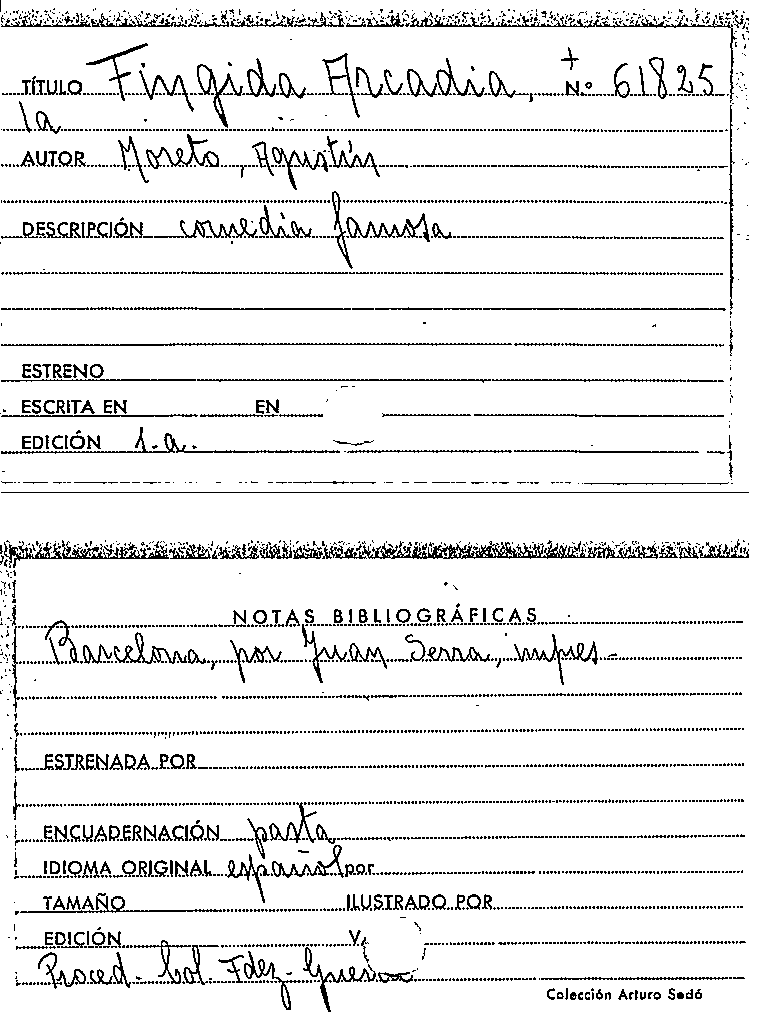 TÍTULO Fingida Arcadia, + N.º 61825
la
AUTOR Moreto, Agustín
DESCRIPCIÓN comedia famosa
ESTRENO
ESCRITA EN EN
EDICIÓN s.a.
NOTAS BIBLIOGRÁFICAS
Barcelona, por Juan Serra, impres-
ESTRENADA POR
ENCUADERNACIÓN pasta
IDIOMA ORIGINAL español por
TAMAÑO ILUSTRADO POR
EDICIÓN V.
Proced- Col. Fdez- Guerra
Colección Arturo Sedó